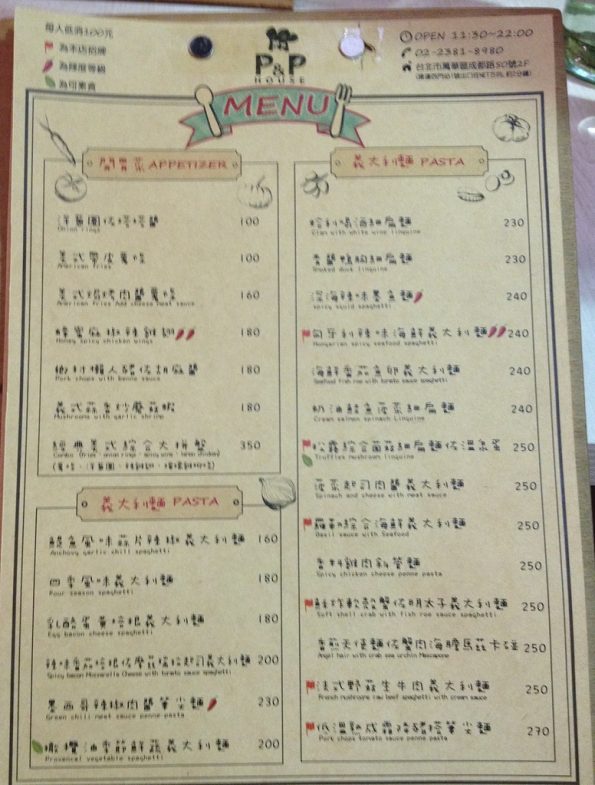 每人低消100元
為本店招牌
為辣度等級
為可素食
P&P
HOUSE
OPEN 11:30~22:00
02-2381-8980
台北市萬華區成都路50號2F
MENU
開胃菜 APPETIZER
洋蔥圈佐塔塔醬 100
Onion rings
美式帶皮薯條 100
American fries
美式焗烤肉醬薯條 160
American fries Add cheese meat sauce
蜂蜜麻椒辣雞翅 180
Honey spicy chicken wings
鄉村懶人豬佐胡麻醬 180
Pork chops with benne sauce
義式蒜香炒蘑菇蝦 180
Mushrooms with garlic shrimp
經典美式綜合大拼盤 350
義大利麵 PASTA
鯷魚風味蒜片辣椒義大利麵 160
Anchovy garlic chili spaghetti
四季風味義大利麵 180
Four season spaghetti
乳酪蛋黃培根義大利麵 180
Egg bacon cheese spaghetti
辣味番茄培根佐摩茲瑞拉起司義大利麵 200
Spicy bacon Mozzarella Cheese with tomato sauce spaghetti
墨西哥辣椒肉醬筆尖麵 230
Green chili meat sauce penne pasta
橄欖油季節鮮蔬義大利麵 200
Provencal vegetable spaghetti
義大利麵 PASTA
蛤利嗆酒細扁麵 230
Clam with white wine linguine
香蘭鴨胸細扁麵 230
Smoked duck linguine
深海辣味墨魚麵 240
spicy squid spaghetti
匈牙利辣味海鮮義大利麵 240
Hungarian spicy seafood spaghetti
海鮮番茄魚卵義大利麵 240
Seafood fish roe with tomato sauce spaghetti
奶油鮭魚菠菜細扁麵 240
Cream salmon spinach Linguine
松露綜合菌菇細扁麵佐溫泉蛋 250
Truffles mushroom linguine
菠菜起司肉醬義大利麵 250
Spinach and cheese with meat sauce
羅勒綜合海鮮義大利麵 250
Basil sauce with Seafood
香料雞肉斜管麵 250
Spicy chicken cheese penne pasta
鮮炸軟殼蟹佐明太子義大利麵 250
Soft shell crab with fish roe sauce spaghetti
香煎天使麵佐蟹肉海膽馬茲卡碰 250
Angel hair with crab sea urchin Mascapone
法式野菇生牛肉義大利麵 250
French mushroom raw beef spaghetti with cream sauce
低溫熟成霜降豬塔筆尖麵 270
Pork chops tomato sauce penne pasta